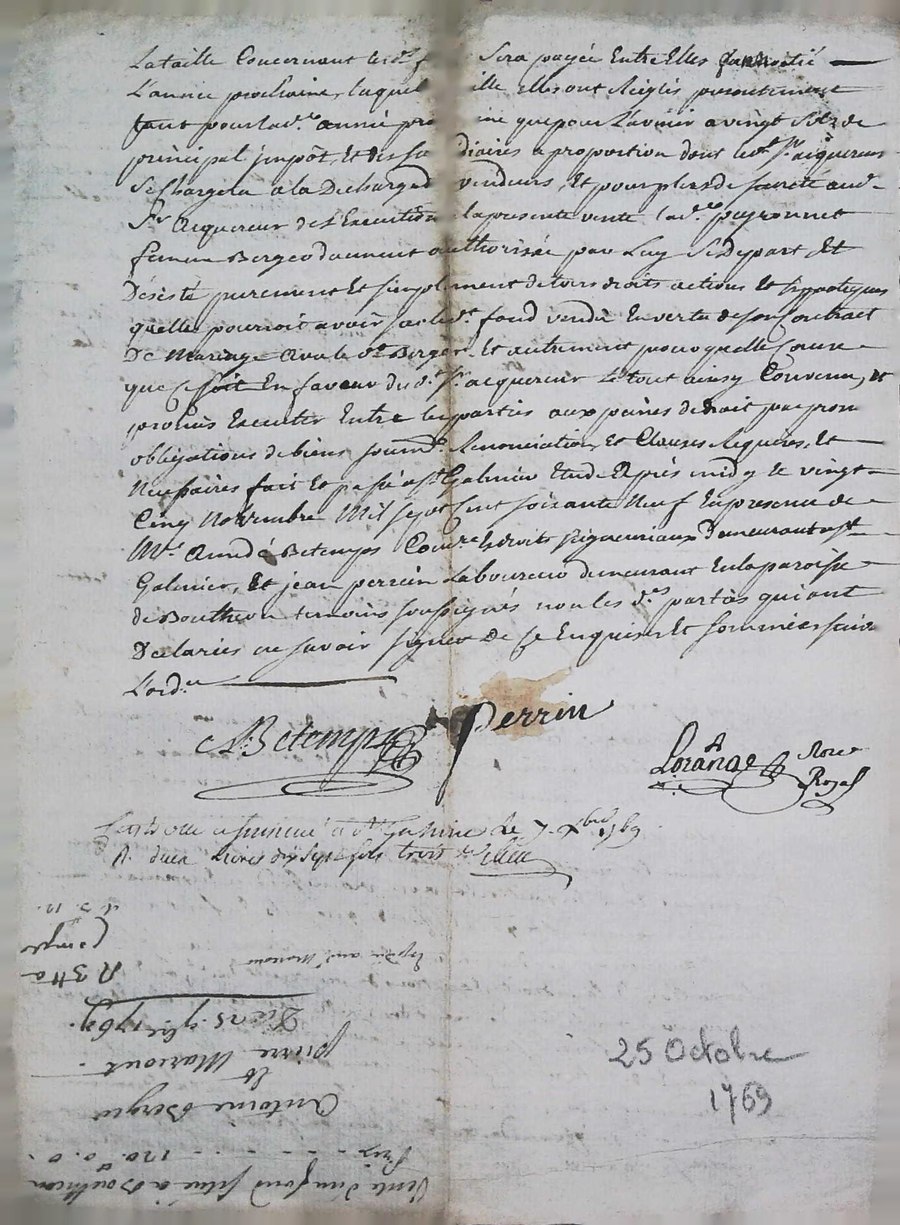 La taille Concernant led.t f Sera payée Entre Elles par moitié
L'année prochaine, laquel ille Elles ont Réglés presentement
tant pour lad.e année pro ine que pour L'avenir a vingt Sols de
principal jmpôt, Et des su diaires a proportion dont led.t S.r acquereur
Se Chargera a la Decharge d vendeurs, Et pour plus de sureté aud.
S.r Acquereur de L'Execution la presente vente lad.e peyronnet
femme Berger duement authorisée par Luy Se Depart Et
Désiste purement Et simplement de tous droits actions Et hypoteques
quelle pourroit avoir sur led.t fond vendu En vertu de son Contract
De Mariage avec led.t Berger Et autrement pour quelle Cause
que Ce soit En faveur dud.t S.r acquereur Le tout ainsy Convenu, et
promis Executer Entre les parties aux peines de droit par
obligations de biens soum.ns Renonciations Et Clauses Requises, Et
Necessaires fait Et passé a S.t Galmier Etude Après midy le vingt
Cinq Novembre Mil sept Cent soixante Neuf En presence de
M.re André Betemps droits seigneuriaux Demeurant a S.t
Galmier, Et jean perrin Laboureur demeurant En la paroisse
de Boutheon temoins soussignés non les d.es parties qui ont
Declarées ne savoir signer de Ce Enquises Et sommées suiv.
L'ord.ce
Betemps Perrin
Lorange No.re
Royal
Controllé a S.t Galmier Le 7 Xbre 1769
R. deux Livres dix sept sols trois d.
Expedié aud. Marcoux
R 3tt
Du 25 9bre 1769.
pierre Marcoux
Et
Antoine Berger
Prix 120.tt 0. 0.
Vente d'un fond situé a Boutheon
25 Octobre
1769